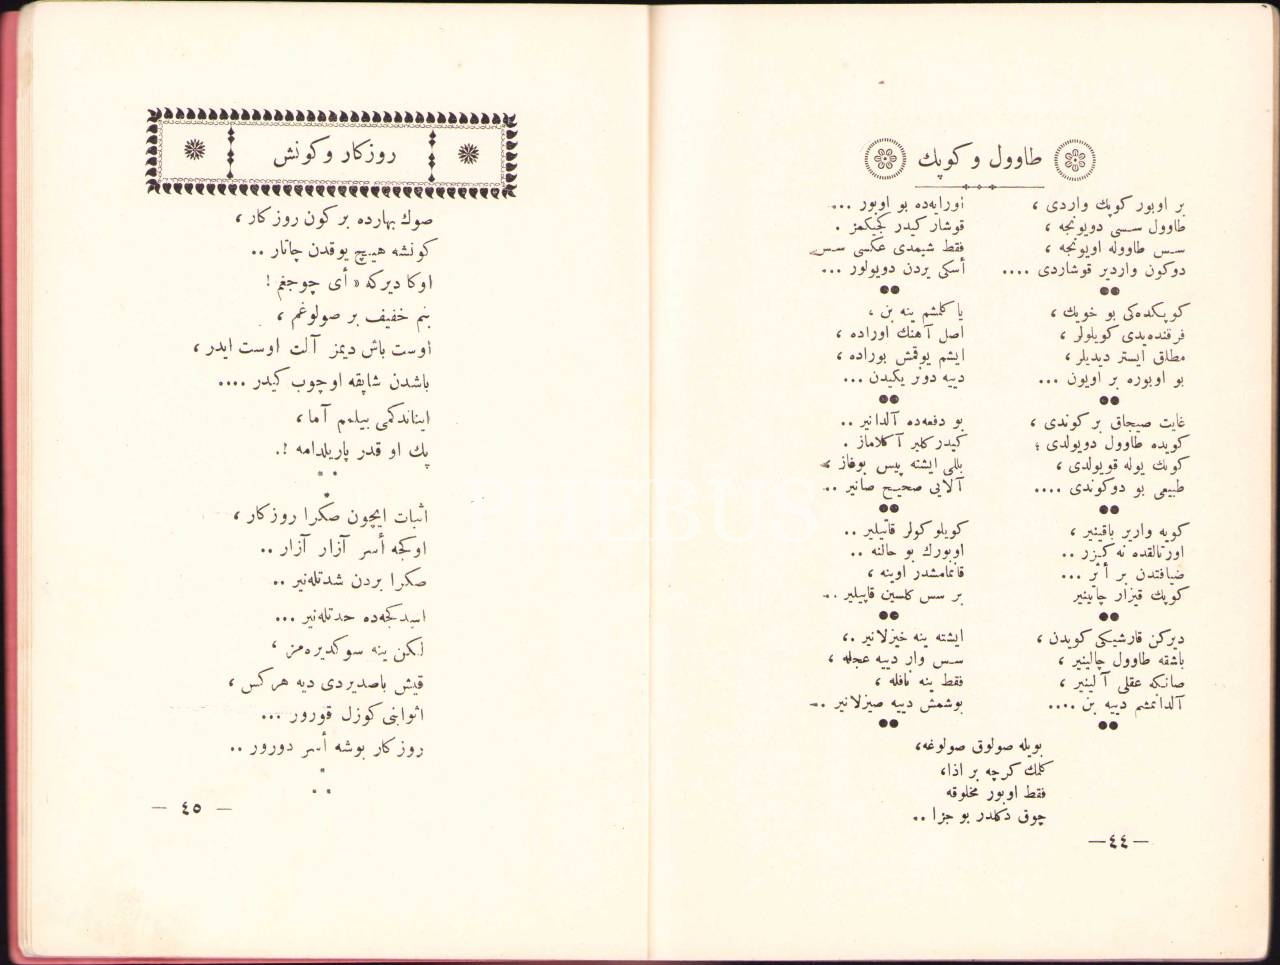 طاوول و كوپك
بر اوبور كوپك واردی ،
طاوول سسی دویونجه ،
سس طاووله اویونجه ،
دوكون واردیر قوشاردی ....
كوپكده‌كی بو خویك ،
فرقنده‌یدی كویلولر ،
مطلق ایستر دیدیلر ،
بو اوبوره بر اویون ...
غایت صیجاق بر كوندی ،
كویده طاوول دویولدی ؛
كوپك یوله قویولدی ،
طبیعی بو دوكوندی ....
كویه واریر باقینیر ،
اورتالقده نه كیزر ..
ضیافتدن بر أثر ...
كوپك قیزار چاتینیر
دیركن قارشیكی كویدن ،
باشقه طاوول چالینیر ،
صانكه عقلی آلینیر ،
آلدانمشم دییه بن ....
اورایه‌ده بو اوبور ...
قوشار كیدر كجیكمز .
فقط شیمدی عكسی سس
أسكی یردن دویولور ...
یا كلمشم ینه بن ،
اصل آهنك اوراده ،
ایشم یوقمش بوراده ،
دییه دونر یكیدن ...
بو دفعه‌ده آلدانیر ..
كیدر كلیر آكلاماز .
بللی ایشته پیس بوغاز ،
آلایی صحیح صانیر ..
كویلو كولر قاتیلیر ..
اوبورك بو حالنه ..
قانمامشدر اوینه ،
بر سس كلسین قاپیلیر ..
ایشته ینه خیزلانیر ..
سس وار دییه عجله ،
فقط ینه نافله ،
بوشمش دییه صیزلانیر ..
بویله صولوق صولوغه،
كلمك كرچه بر اذا،
فقط اوبور مخلوقه
چوق دكلدر بو جزا ..
—٤٤—
روزكار و كونش
صوك بهارده بر كون روزكار ،
كونشه هیچ یوقدن چاتار ..
اوكا دیركه « أی چوجغم !
بنم خفیف بر صولوغم ،
اوست باش دیمز آلت اوست ایدر ،
باشدن شاپقه اوچوب كیدر ....
ایناندكمی بیلهم آما ،
پك او قدر پاریلدامه !.
اثبات ایچون صكرا روزكار ،
اوكجه أسر آزار آزار ..
صكرا بردن شدتله‌نیر ..
اسیدكجه‌ده حدتله‌نیر ...
لكن ینه سوكدیره‌مز ،
قیش باصدیردی دیه هركس ،
اثوابنی كوزل قورور ...
روزكار بوشه أسر دورور ..
— ٤٥ —